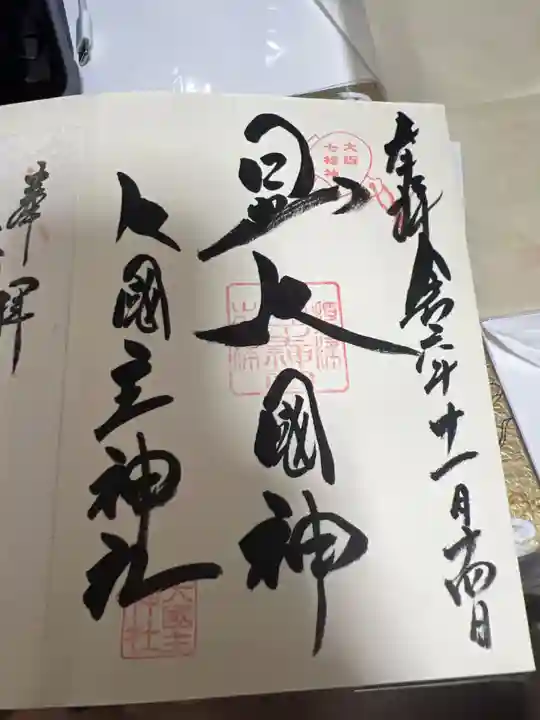 奉拝 令和六年十一月十四日
大阪
七福神
日出大國神
大國主神社
大國主
神社
奉拝